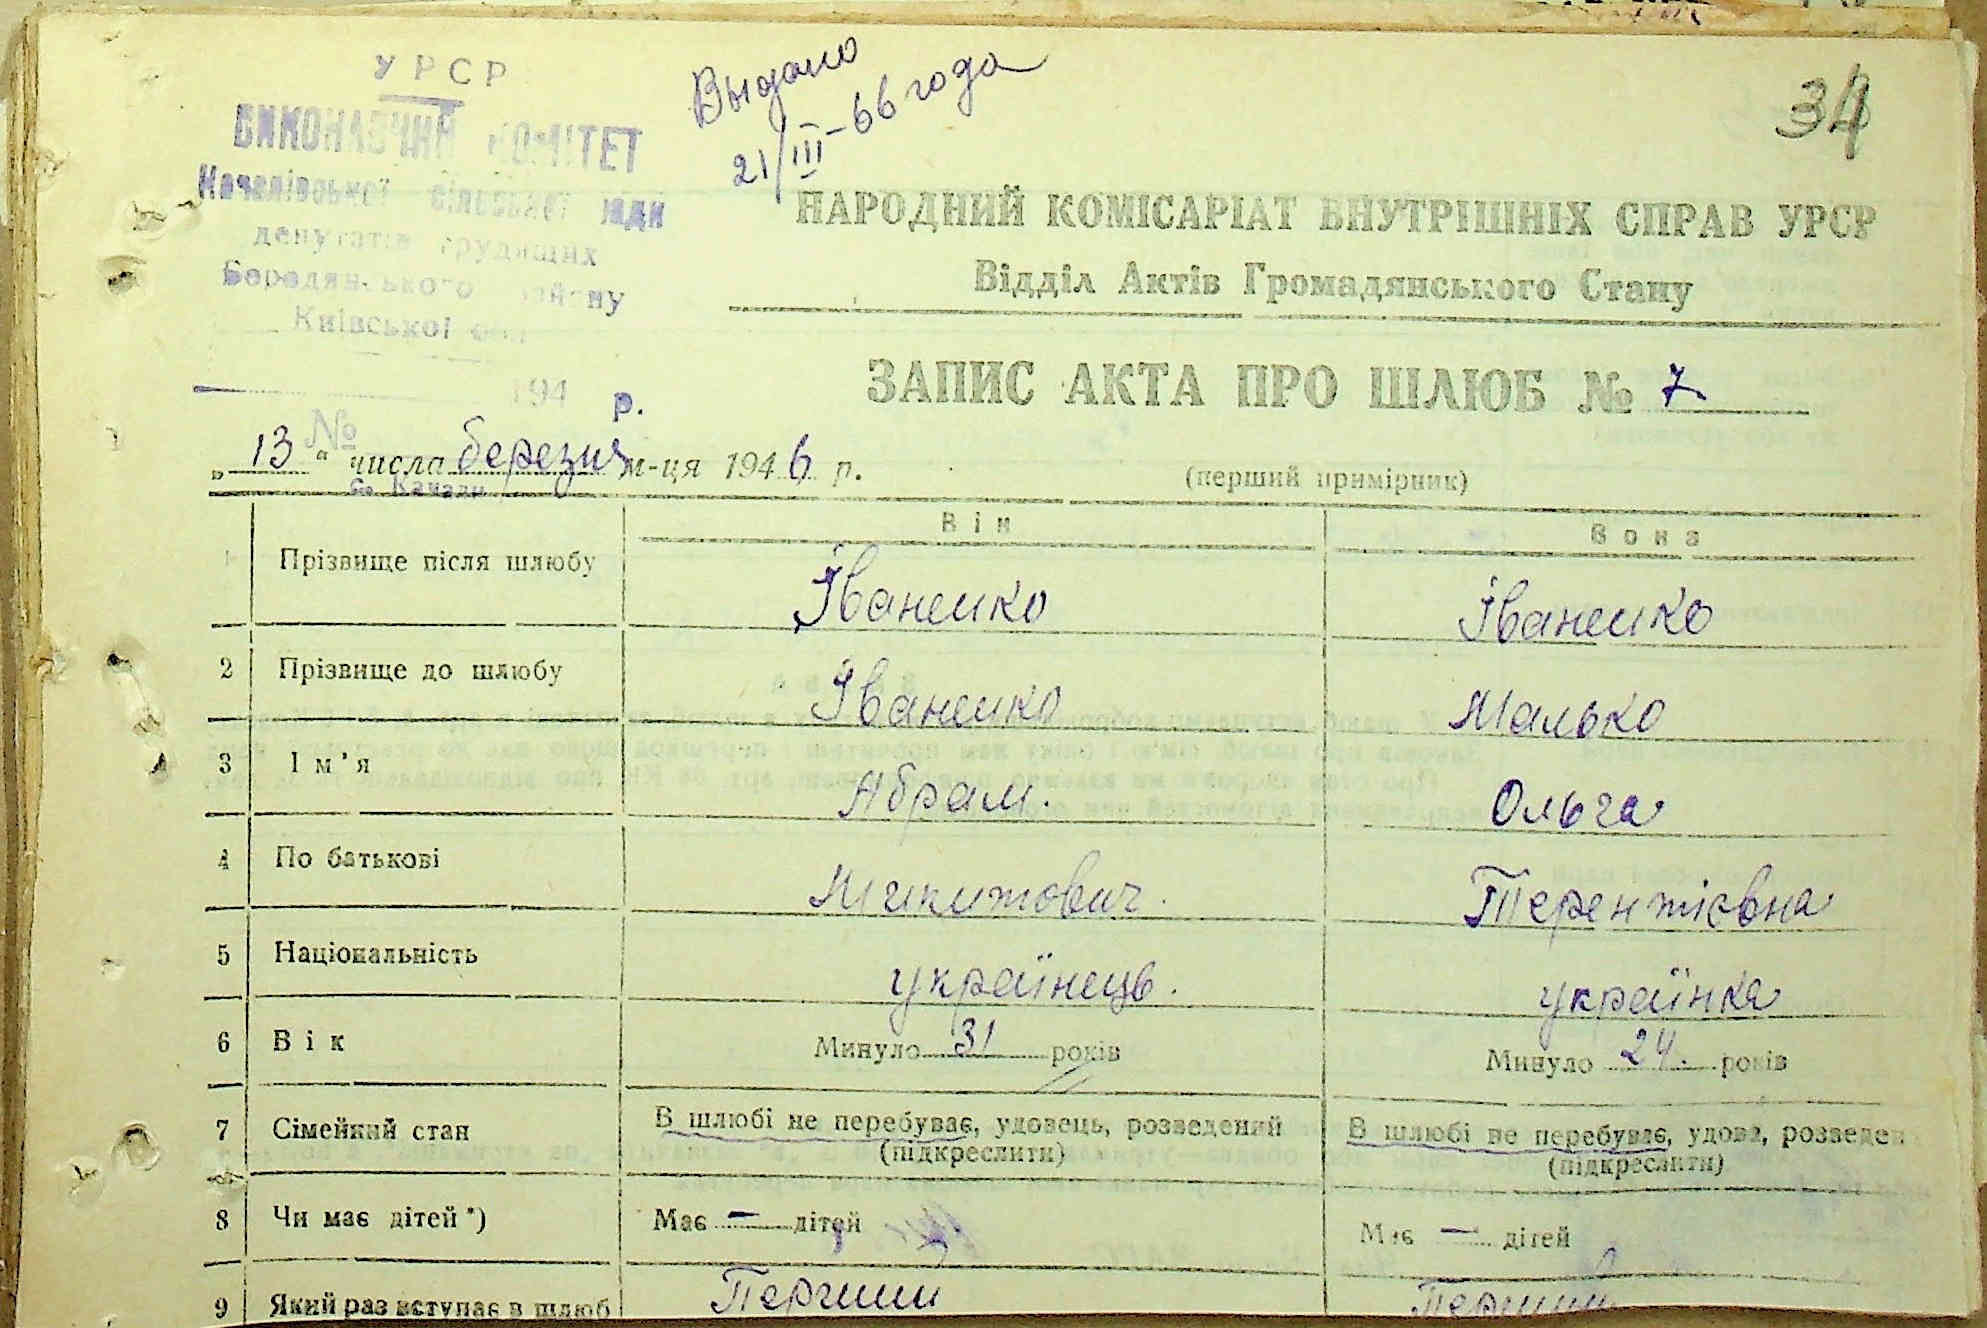 УРСР
ВИКОНАВЧИЙ КОМІТЕТ
Качалівської сільської ради
депутатів трудящих
Бородянського району
Київської обл
194 р.
№
с. Качали
Выдано
21/III-66 года
34
НАРОДНИЙ КОМІСАРІАТ ВНУТРІШНІХ СПРАВ УРСР
Відділ Актів Громадянського Стану
ЗАПИС АКТА ПРО ШЛЮБ № 7
„13“ числа березня м-ця 1946 р.
(перший примірник)
Він Вона
1 Прізвище після шлюбу Іваненко Іваненко
2 Прізвище до шлюбу Іваненко Малько
3 Ім’я Абрам. Ольга
4 По батькові Микитович. Терентієвна
5 Національність українець. українка
6 Вік Минуло 31 років Минуло 24. років
7 Сімейний стан В шлюбі не перебуває, удовець, розведений В шлюбі не перебуває, удова, розведен
(підкреслити) (підкреслити)
8 Чи має дітей*) Має — дітей Має — дітей
9 Який раз вступає в шлюб Перший Перший